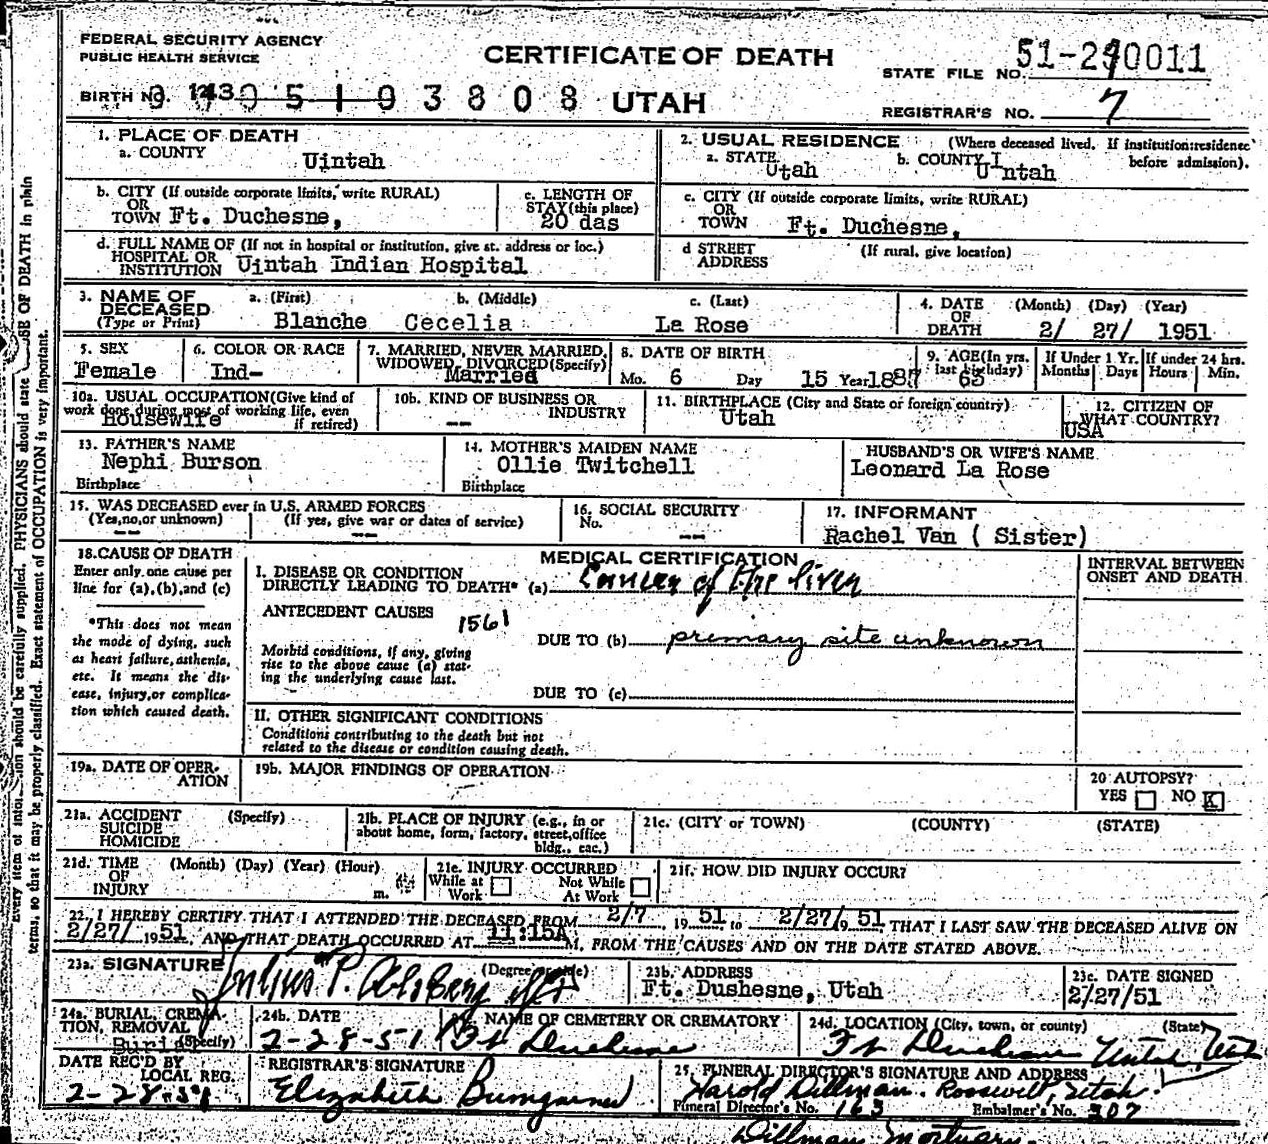 FEDERAL SECURITY AGENCY
PUBLIC HEALTH SERVICE
CERTIFICATE OF DEATH
STATE FILE NO.
BIRTH NO.
UTAH
REGISTRAR'S NO. 7
1. PLACE OF DEATH
a. COUNTY
Uintah
2. USUAL RESIDENCE (Where deceased lived. If institution: residence before admission).
a. STATE Utah
b. COUNTY Uintah
b. CITY (If outside corporate limits, write RURAL)
OR
TOWN Ft. Duchesne,
c. LENGTH OF
STAY (this place)
20 das
c. CITY (If outside corporate limits, write RURAL)
OR
TOWN Ft. Duchesne,
d. FULL NAME OF (If not in hospital or institution, give st. address or loc.)
HOSPITAL OR
INSTITUTION Uintah Indian Hospital
d STREET (If rural, give location)
ADDRESS
3. NAME OF
DECEASED
(Type or Print)
a. (First) b. (Middle) c. (Last)
Blanche Cecelia La Rose
4. DATE (Month) (Day) (Year)
OF
DEATH 2/ 27/ 1951
5. SEX
Female
6. COLOR OR RACE
Ind-
7. MARRIED, NEVER MARRIED,
WIDOWED, DIVORCED (Specify)
Married
8. DATE OF BIRTH
Mo. 6 Day 15 Year 1887
9. AGE (In yrs.
last birthday)
63
If Under 1 Yr.
Months Days
If under 24 hrs.
Hours Min.
10a. USUAL OCCUPATION (Give kind of
work done during most of working life, even
if retired)
Housewife
10b. KIND OF BUSINESS OR
INDUSTRY
--
11. BIRTHPLACE (City and State or foreign country)
Utah
12. CITIZEN OF
WHAT COUNTRY?
USA
13. FATHER'S NAME
Nephi Burson
Birthplace
14. MOTHER'S MAIDEN NAME
Ollie Twitchell
Birthplace
HUSBAND'S OR WIFE'S NAME
Leonard La Rose
15. WAS DECEASED ever in U.S. ARMED FORCES
(Yes, no, or unknown) (If yes, give war or dates of service)
-- --
16. SOCIAL SECURITY
No. --
17. INFORMANT
Rachel Van ( Sister)
18. CAUSE OF DEATH
Enter only one cause per
line for (a), (b), and (c)
*This does not mean
the mode of dying, such
as heart failure, asthenia,
etc. It means the dis-
ease, injury, or complica-
tion which caused death.
MEDICAL CERTIFICATION
I. DISEASE OR CONDITION
DIRECTLY LEADING TO DEATH* (a) Cancer of the liver
ANTECEDENT CAUSES
1561
DUE TO (b) primary site unknown
Morbid conditions, if any, giving
rise to the above cause (a) stat-
ing the underlying cause last.
DUE TO (c)
II. OTHER SIGNIFICANT CONDITIONS
Conditions contributing to the death but not
related to the disease or condition causing death.
INTERVAL BETWEEN
ONSET AND DEATH
19a. DATE OF OPER-
ATION
19b. MAJOR FINDINGS OF OPERATION
20 AUTOPSY?
YES NO X
21a. ACCIDENT (Specify)
SUICIDE
HOMICIDE
21b. PLACE OF INJURY (e.g., in or
about home, form, factory, street, office
bldg., eac.)
21c. (CITY or TOWN) (COUNTY) (STATE)
21d. TIME (Month) (Day) (Year) (Hour)
OF
INJURY m.
21e. INJURY OCCURRED
While at Work Not While At Work
21f. HOW DID INJURY OCCUR?
22. I HEREBY CERTIFY THAT I ATTENDED THE DECEASED FROM 2/7, 1951 to 2/27/ 1951 THAT I LAST SAW THE DECEASED ALIVE ON
2/27/ 1951, AND THAT DEATH OCCURRED AT 11:15A M, FROM THE CAUSES AND ON THE DATE STATED ABOVE.
23a. SIGNATURE (Degree or title)
Julius P.
23b. ADDRESS
Ft. Dushesne, Utah
23c. DATE SIGNED
2/27/51
24a. BURIAL, CREMA-
TION, REMOVAL
(Specify)
Burial
24b. DATE
2-28-51
NAME OF CEMETERY OR CREMATORY
Ft Duchesne
24d. LOCATION (City, town, or county) (State)
Ft Duchesne Uintah, Utah
DATE REC'D BY
LOCAL REG.
2-28-51
REGISTRAR'S SIGNATURE
Elizabeth Bumgarner
25. FUNERAL DIRECTOR'S SIGNATURE AND ADDRESS
Harold Dillman Roosevelt, Utah
Funeral Director's No. 163 Embalmer's No. 307
Dillman Mortuary
every item of information should be carefully supplied. PHYSICIANS should state CAUSE OF DEATH in plain
terms, so that it may be properly classified. Exact statement of OCCUPATION is very important.